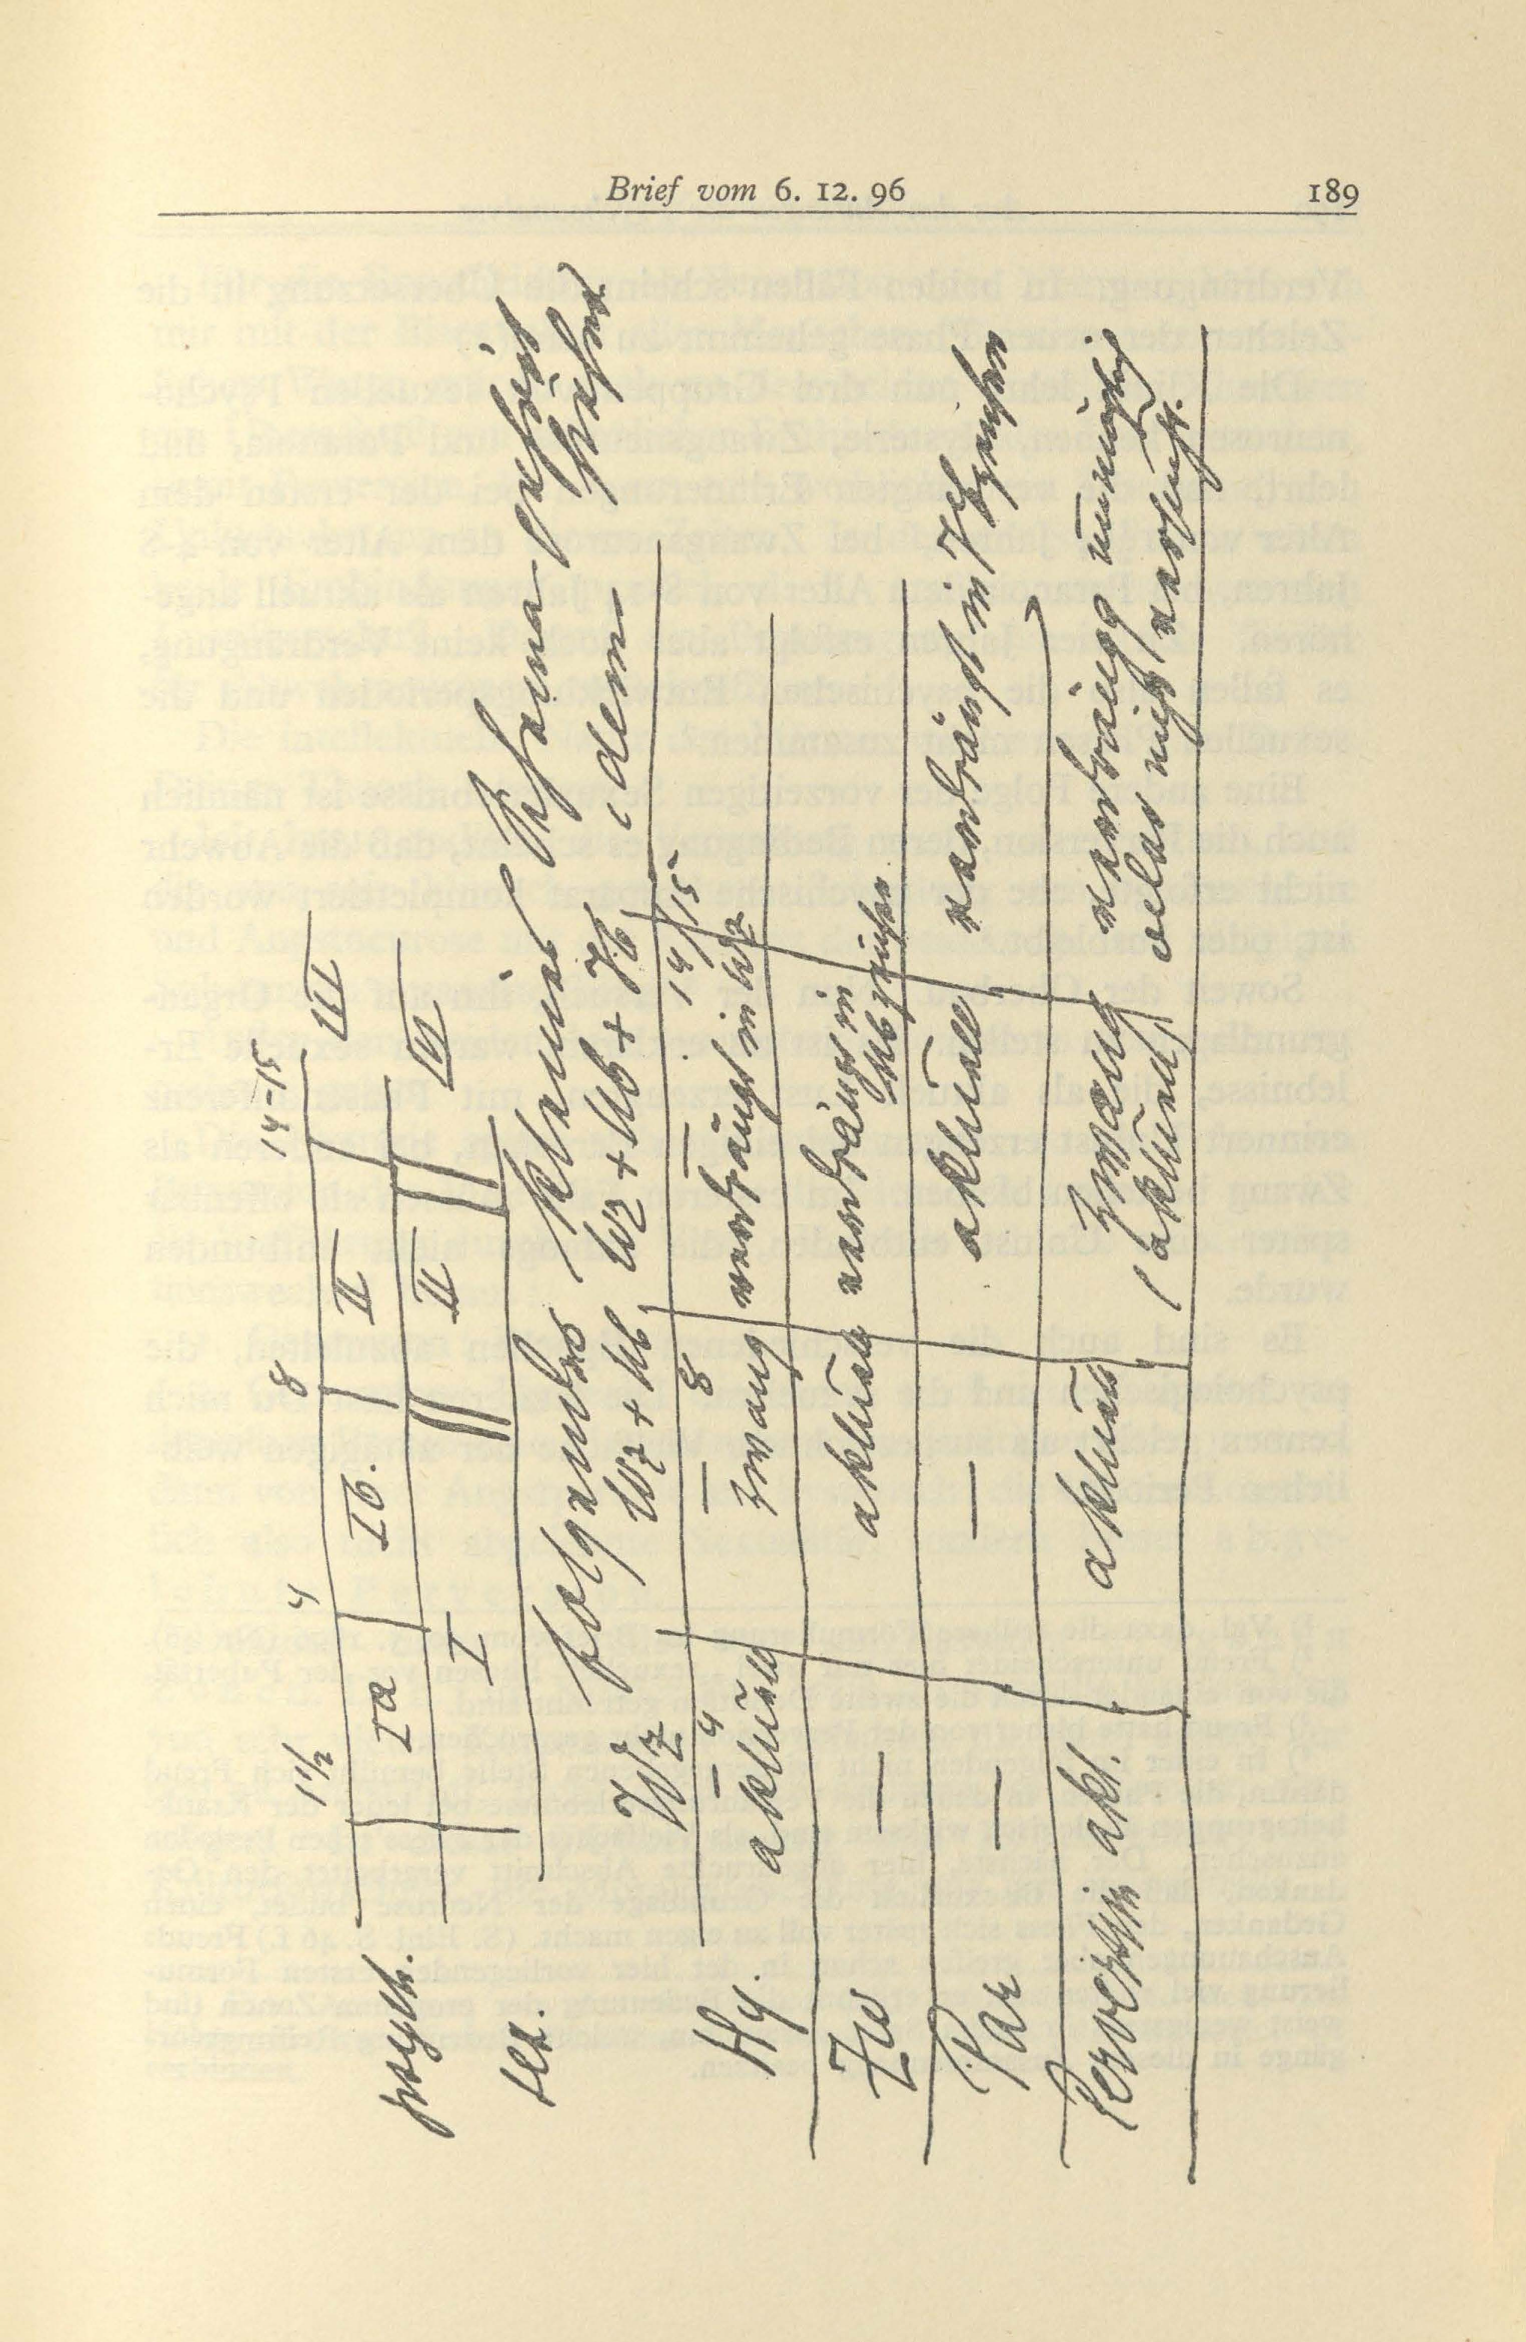 Brief vom 6. 12. 96 189
1 1/2 4 8 14–15
psych. Ia Ib. II III
sex. I II III
folgendes kleines Schema
Wz Wz + Ub Wz + Ub + Vb idem
– 4 – 8 – 14/15
Hy. aktuell Zwang verdrängt in Wz
Zw — aktuell verdrängt in
Ubzeichen
Par — — aktuell verdrängt in Vbzeichen
Perversion akt. aktuell Zwang Verdrängg unmöglich
(aktuell) oder nicht versucht.